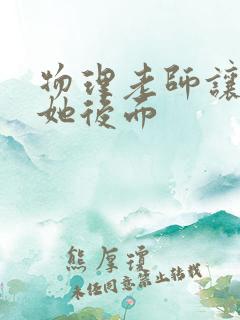 物理老師讓
她後而
熊厚瓊
未任同意禁止转载